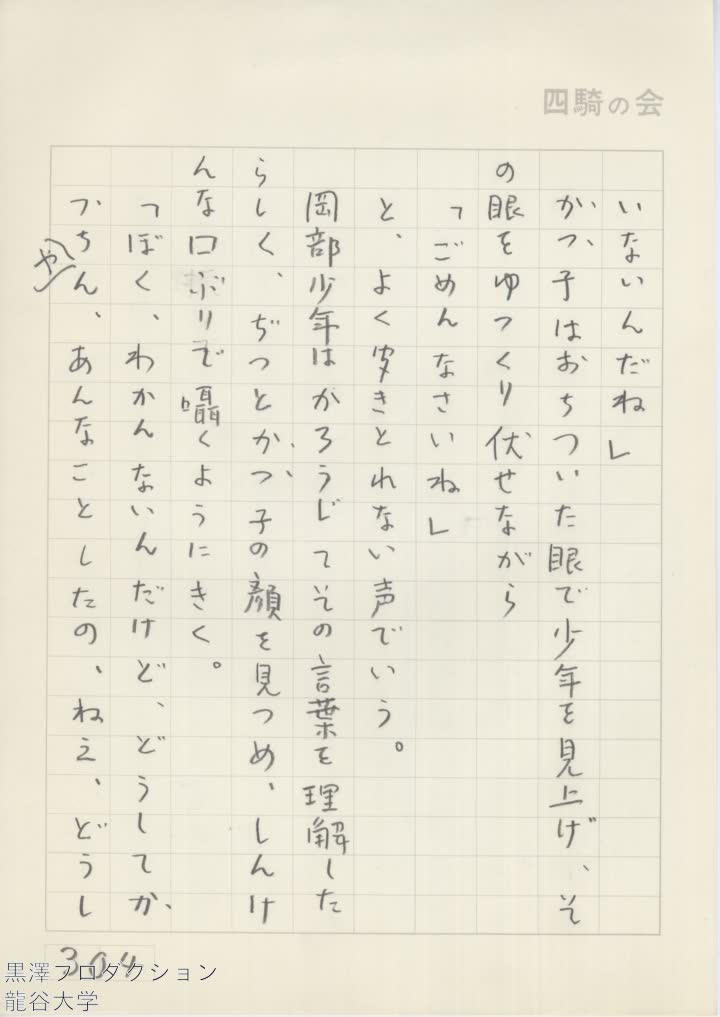 四騎の会
いないんだね」
かつ子はおちついた眼で少年を見上げ、そ
の眼をゆつくり伏せながら
「ごめんなさいね」
と、よく聞きとれない声でいう。
岡部少年はかろうじてその言葉を理解した
らしく、ぢつとかつ子の顔を見つめ、しんけ
んな口ぶりで囁くようにきく。
「ぼく、わかんないんだけど、どうしてか
つちゃん、あんなことしたの、ねえ、どうし
304
黒澤プロダクション
龍谷大学